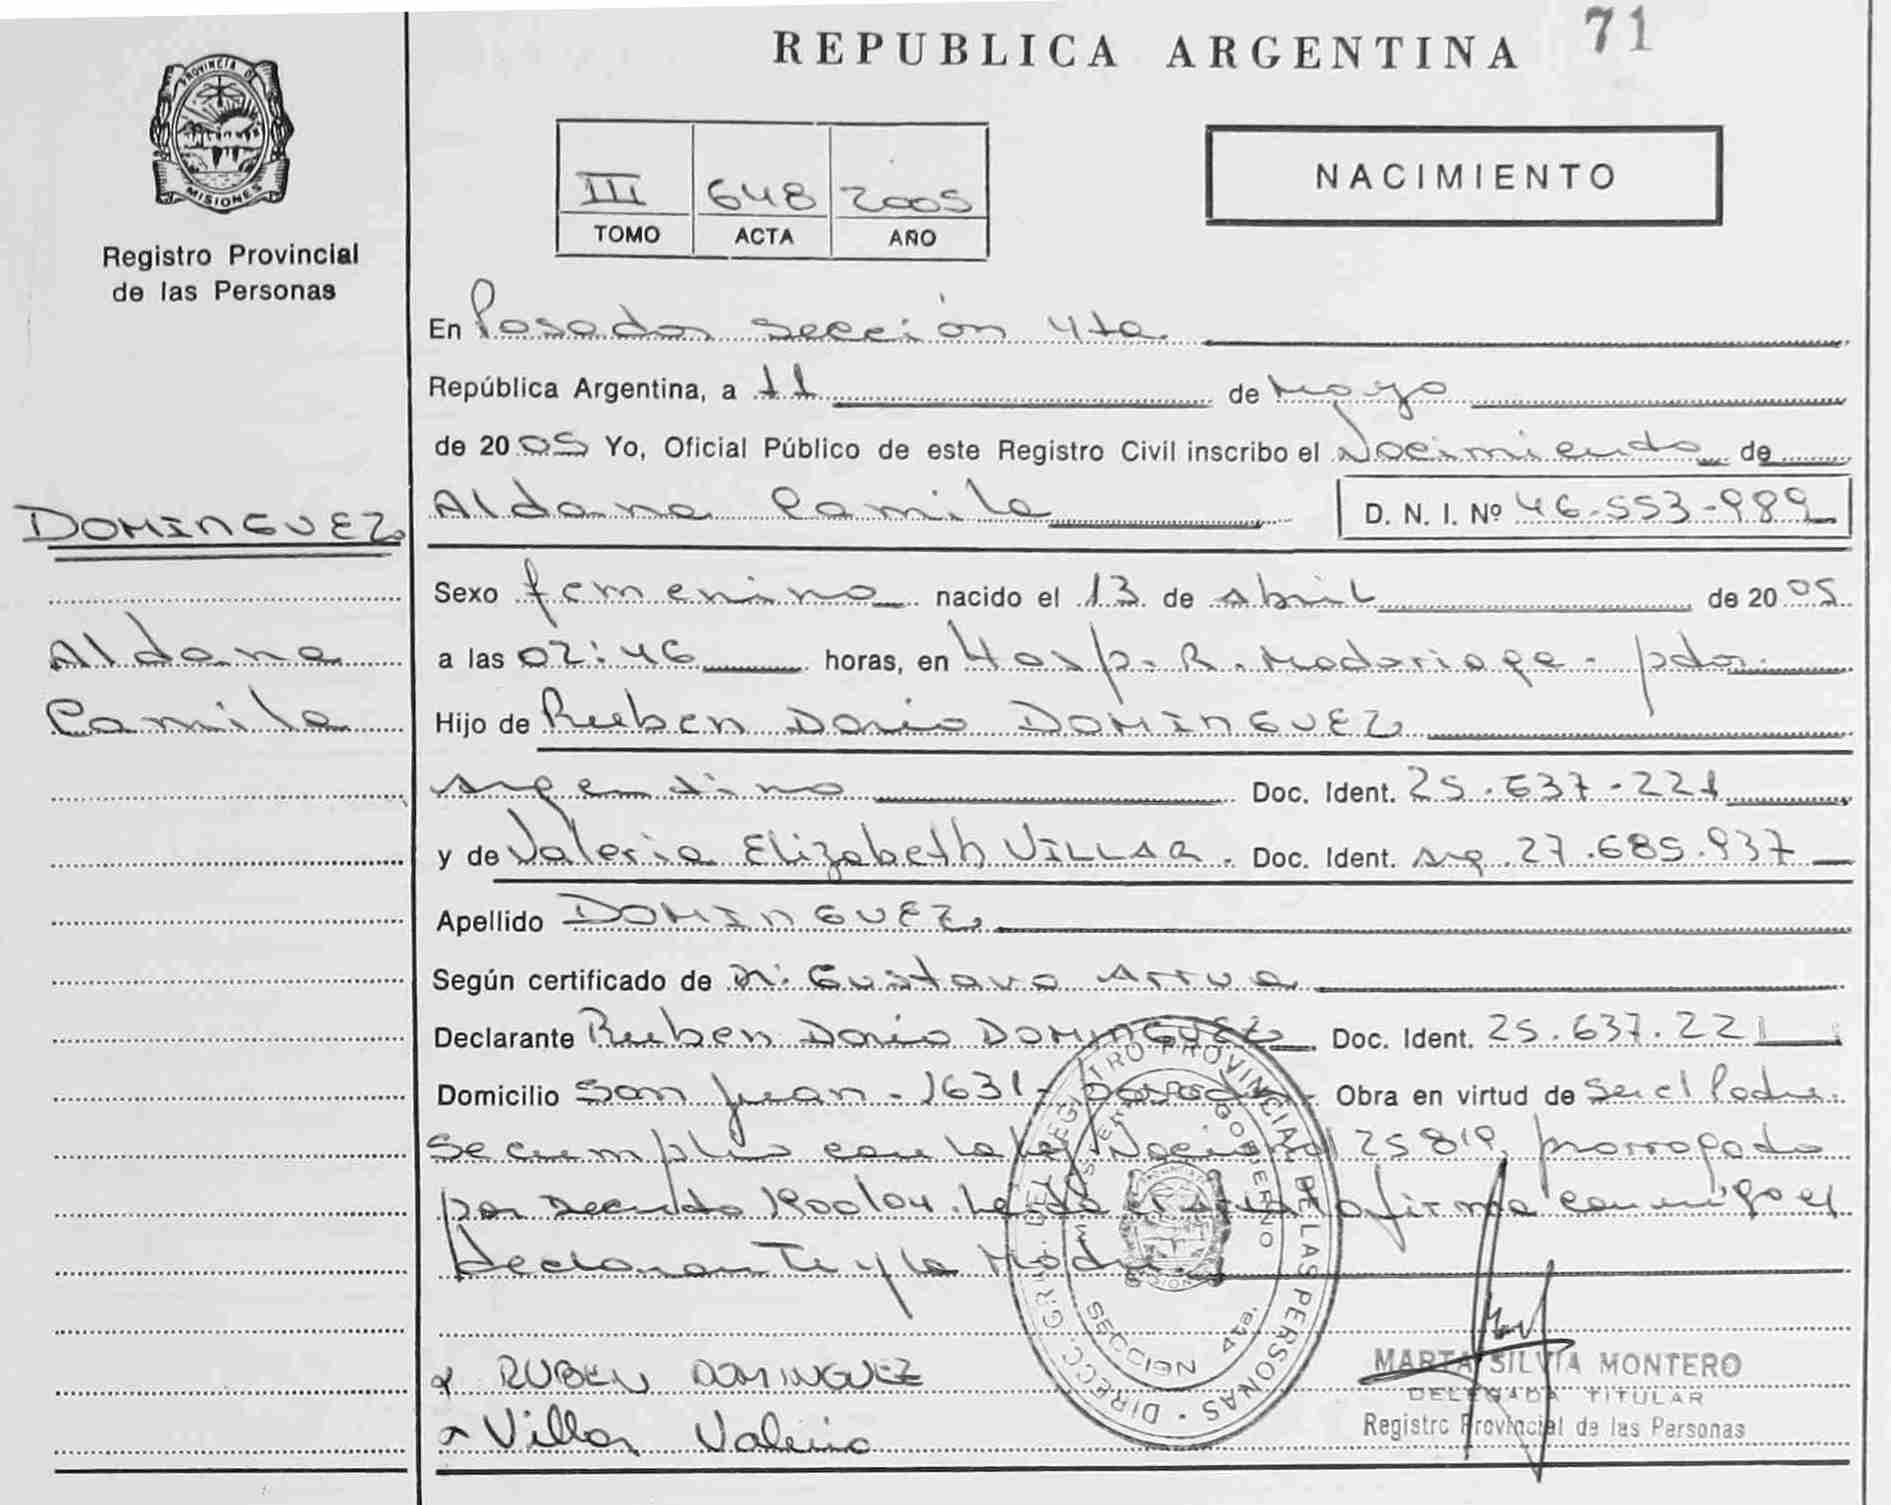 REPUBLICA ARGENTINA 71
PROVINCIA DE
MISIONES
Registro Provincial
de las Personas
III 648 2005
TOMO ACTA AÑO
NACIMIENTO
En Posadas sección 4ta.
República Argentina, a 11 de Mayo
de 2005 Yo, Oficial Público de este Registro Civil inscribo el Nacimiento de
DOMINGUEZ
Aldana Camila
Aldana Camila D. N. I. Nº 46-553-989
Sexo femenino nacido el 13 de Abril de 2005
a las 02:46 horas, en Hosp. R. Madariaga - pdas.
Hijo de Ruben Dario DOMINGUEZ
argentino Doc. Ident. 25.637.221
y de Valeria Elizabeth VILLAR. Doc. Ident. arg. 27.685.937
Apellido DOMINGUEZ
Según certificado de Dr. Gustavo Arrua
Declarante Ruben Dario DOMINGUEZ Doc. Ident. 25.637.221
Domicilio San Juan - 1631 - posadas Obra en virtud de Ser el Padre.
Se cumplio con la ley Nacional 25819, prorrogado
por Decreto 1900/04. Leida el Acta la firma conmigo el
declarante y la Madre.
DIRECC. GRAL. DEL REGISTRO PROVINCIAL DE LAS PERSONAS
GOBIERNO
SECCION 4ta.
x RUBEN DOMINGUEZ
x Villar Valeria
MARTA SILVIA MONTERO
DELEGADA TITULAR
Registro Provincial de las Personas